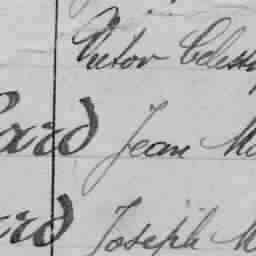 Victor Celest
ard Jean M
ard Joseph M